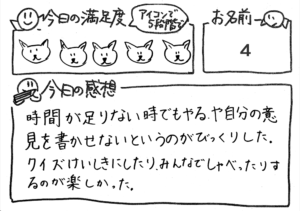 今日の満足度
アイコンで
5段階
お名前
4
今日の感想
時間が足りない時でもやる、や自分の意
見を書かせないというのがびっくりした。
クイズけいしきにしたり、みんなでしゃべったりす
るのが楽しかった。